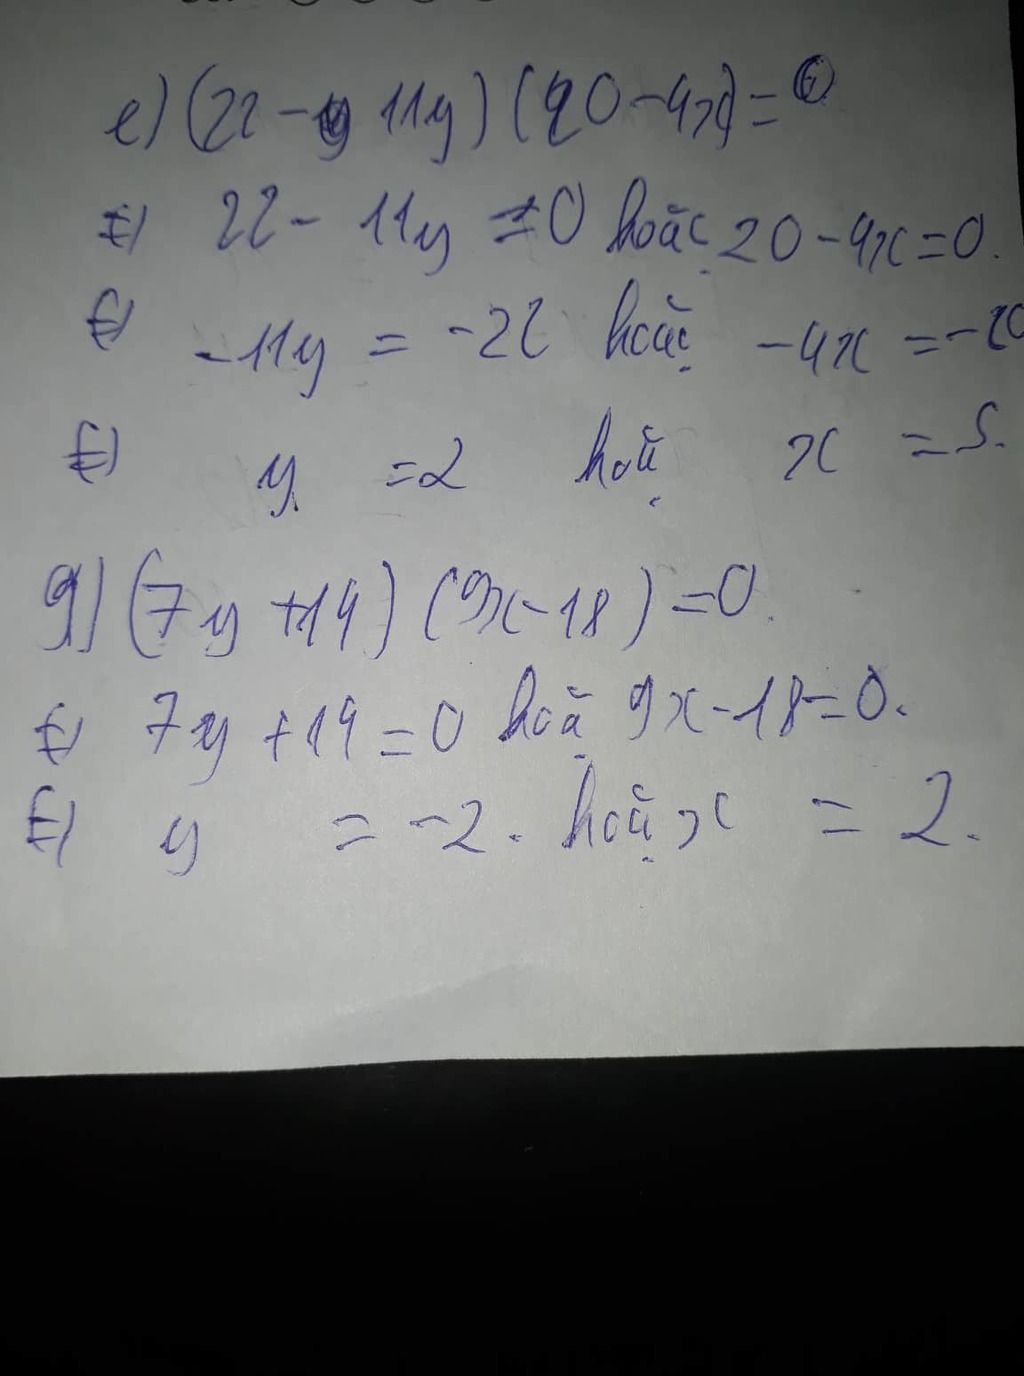 e) (22 - 11y) (20 - 4x) = 0
<=> 22 - 11y = 0 hoặc 20 - 4x = 0.
<=> -11y = -22 hoặc -4x = -20
<=> y = 2 hoặc x = 5.
g) (7y + 14) (9x - 18) = 0.
<=> 7y + 14 = 0 hoặc 9x - 18 = 0.
<=> y = -2. hoặc x = 2.